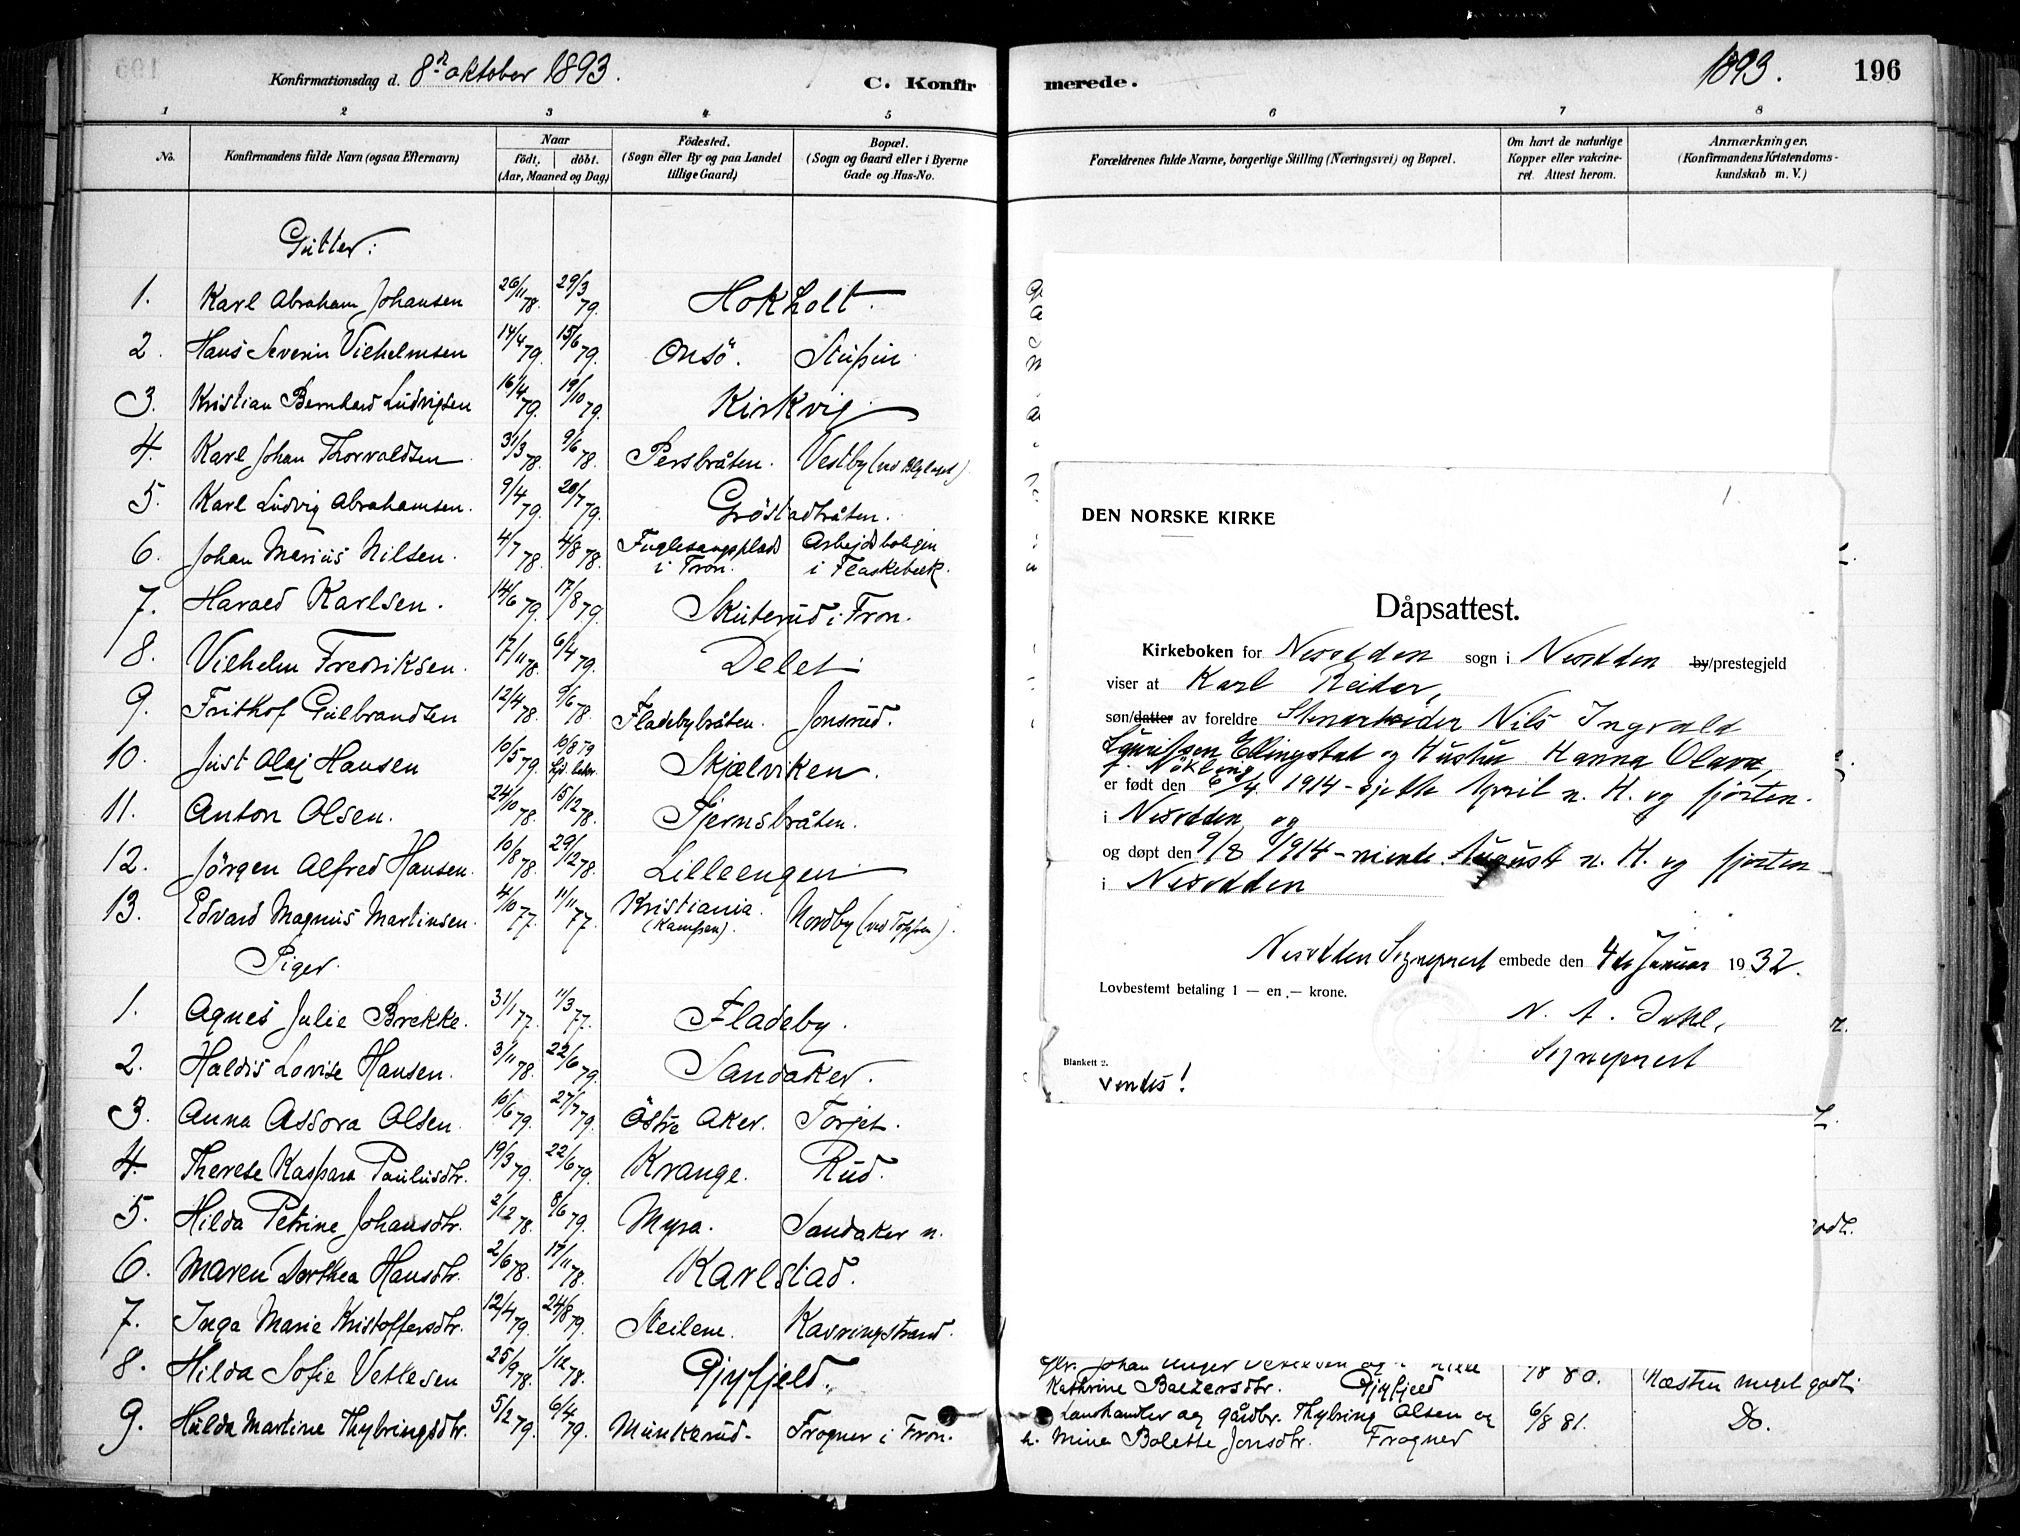 Konfirmationsdag d. 8de oktober 1893.
C. Konfir
1 2 3 4 5
No. Konfirmandens fulde Navn (ogsaa Efternavn) Naar født, døbt. (Aar, Maaned og Dag) Fødested. (Sogn eller By og paa Landet tillige Gaard) Bopæl. (Sogn og Gaard eller i Byerne Gade og Hus-No.
Gutter:
1. Karl Abraham Johansen 26/11 78. 29/3 79. Hokholt.
2. Hans Severin Vilhelmsen 14/4 79. 15/6 79. Onsö.
3. Kristian Bernhard Ludvigsen 16/4 79. 19/10 79. Kirkvig
4. Karl Johan Thorvaldsen 31/3 78. 9/6 78. Persbråten. Vestby
5. Karl Ludvig Abrahamsen. 9/4 79. 20/7 79. Gröstadbråten.
6. Johan Marius Nilsen. 4/7 78. 4/8 78. Fuglesangsplads i Fron. Arbejdsboligen i Flaskebæk.
7. Harald Karlsen. 14/6 79. 17/8 79. Skuterud i Fron.
8. Vilhelm Fredriksen. 17/11 78. 6/4 79. Delet
9. Frithof Gulbrandsen 12/4 78. 9/6 78. Fladebybråten. Jonsrud.
10. Just Olaj Hansen 10/5 79. 10/8 79 Skjælviken.
11. Anton Olsen. 24/10 78. 15/12 78. Fjernsbråten.
12. Jörgen Alfred Hansen. 10/8 78. 29/12 78. Lilleengen
13. Edvard Magnus Martinsen. 4/10 77. 11/11 77. Kristiania. (Kampen). Nordby (ved Toppen).
Piger.
1. Agnes Julie Brekke. 31/1 77. 11/3 77. Fladeby.
2. Haldis Lovise Hansen. 3/11 78. 22/6 79. Sandaker.
3. Anna Assora Olsen. 10/6 79. 27/7 79. Östre Aker. Torjet.
4. Therese Kaspara Paulusdtr. 19/3 79. 22/6 79. Krange. Rud.
5. Hilda Petrine Johansdtr. 2/12 78. 8/6 79. Myra. Sandaker n.
6. Maren Dorthea Hansdtr. 2/6 78. 17/11 78. Karlstad.
7. Inga Marie Kristoffersdtr. 12/4 79. 24/8 79. Steilene. Kavringstrand.
8. Hilda Sofie Vetlesen 25/9 78. 1/12 78. Gjøfjeld.
9. Hulda Martine Thybringsdtr. 5/2 79. 6/4 79. Munkerud. Frogner i Fron.
merede.
1893. 196
6 7 8
Forældrenes fulde Navne, borgerlige Stilling (Næringsvei) og Bopæl. Om havt de naturlige Kopper eller vakcineret. Attest herom. Anmærkninger. (Konfirmandens Kristendomskundskab m. V.)
1.
DEN NORSKE KIRKE
Dåpsattest.
Kirkeboken for Nesodden sogn i Nesodden by/prestegjeld
viser at Karl Reidar,
søn/datter av foreldre Stenarbeider Nils Ingvald
Lauritsen Ellingstad og Hustru Hanna Olava,
f. Nökleng
er født den 6/4 1914 - sjette April n. H. og fjorten.
i Nesodden, og
og døpt den 9/8 1914 - niende August n. H. og fjorten
i Nesodden
Nesodden Sogneprest embede den 4de Januar 1932.
Lovbestemt betaling 1 — en.— krone.
N. A. Dahl,
Sogneprest
Blankett 2.
Vendes!
Kathrine Baltzersdtr. Gjøfjeld /8 80. Næsten meget godt.
Landhandler og gårdbr. Thybring Olsen og 6/8 81. Do.
h. Mina Bolette Jonsdtr. Frogner